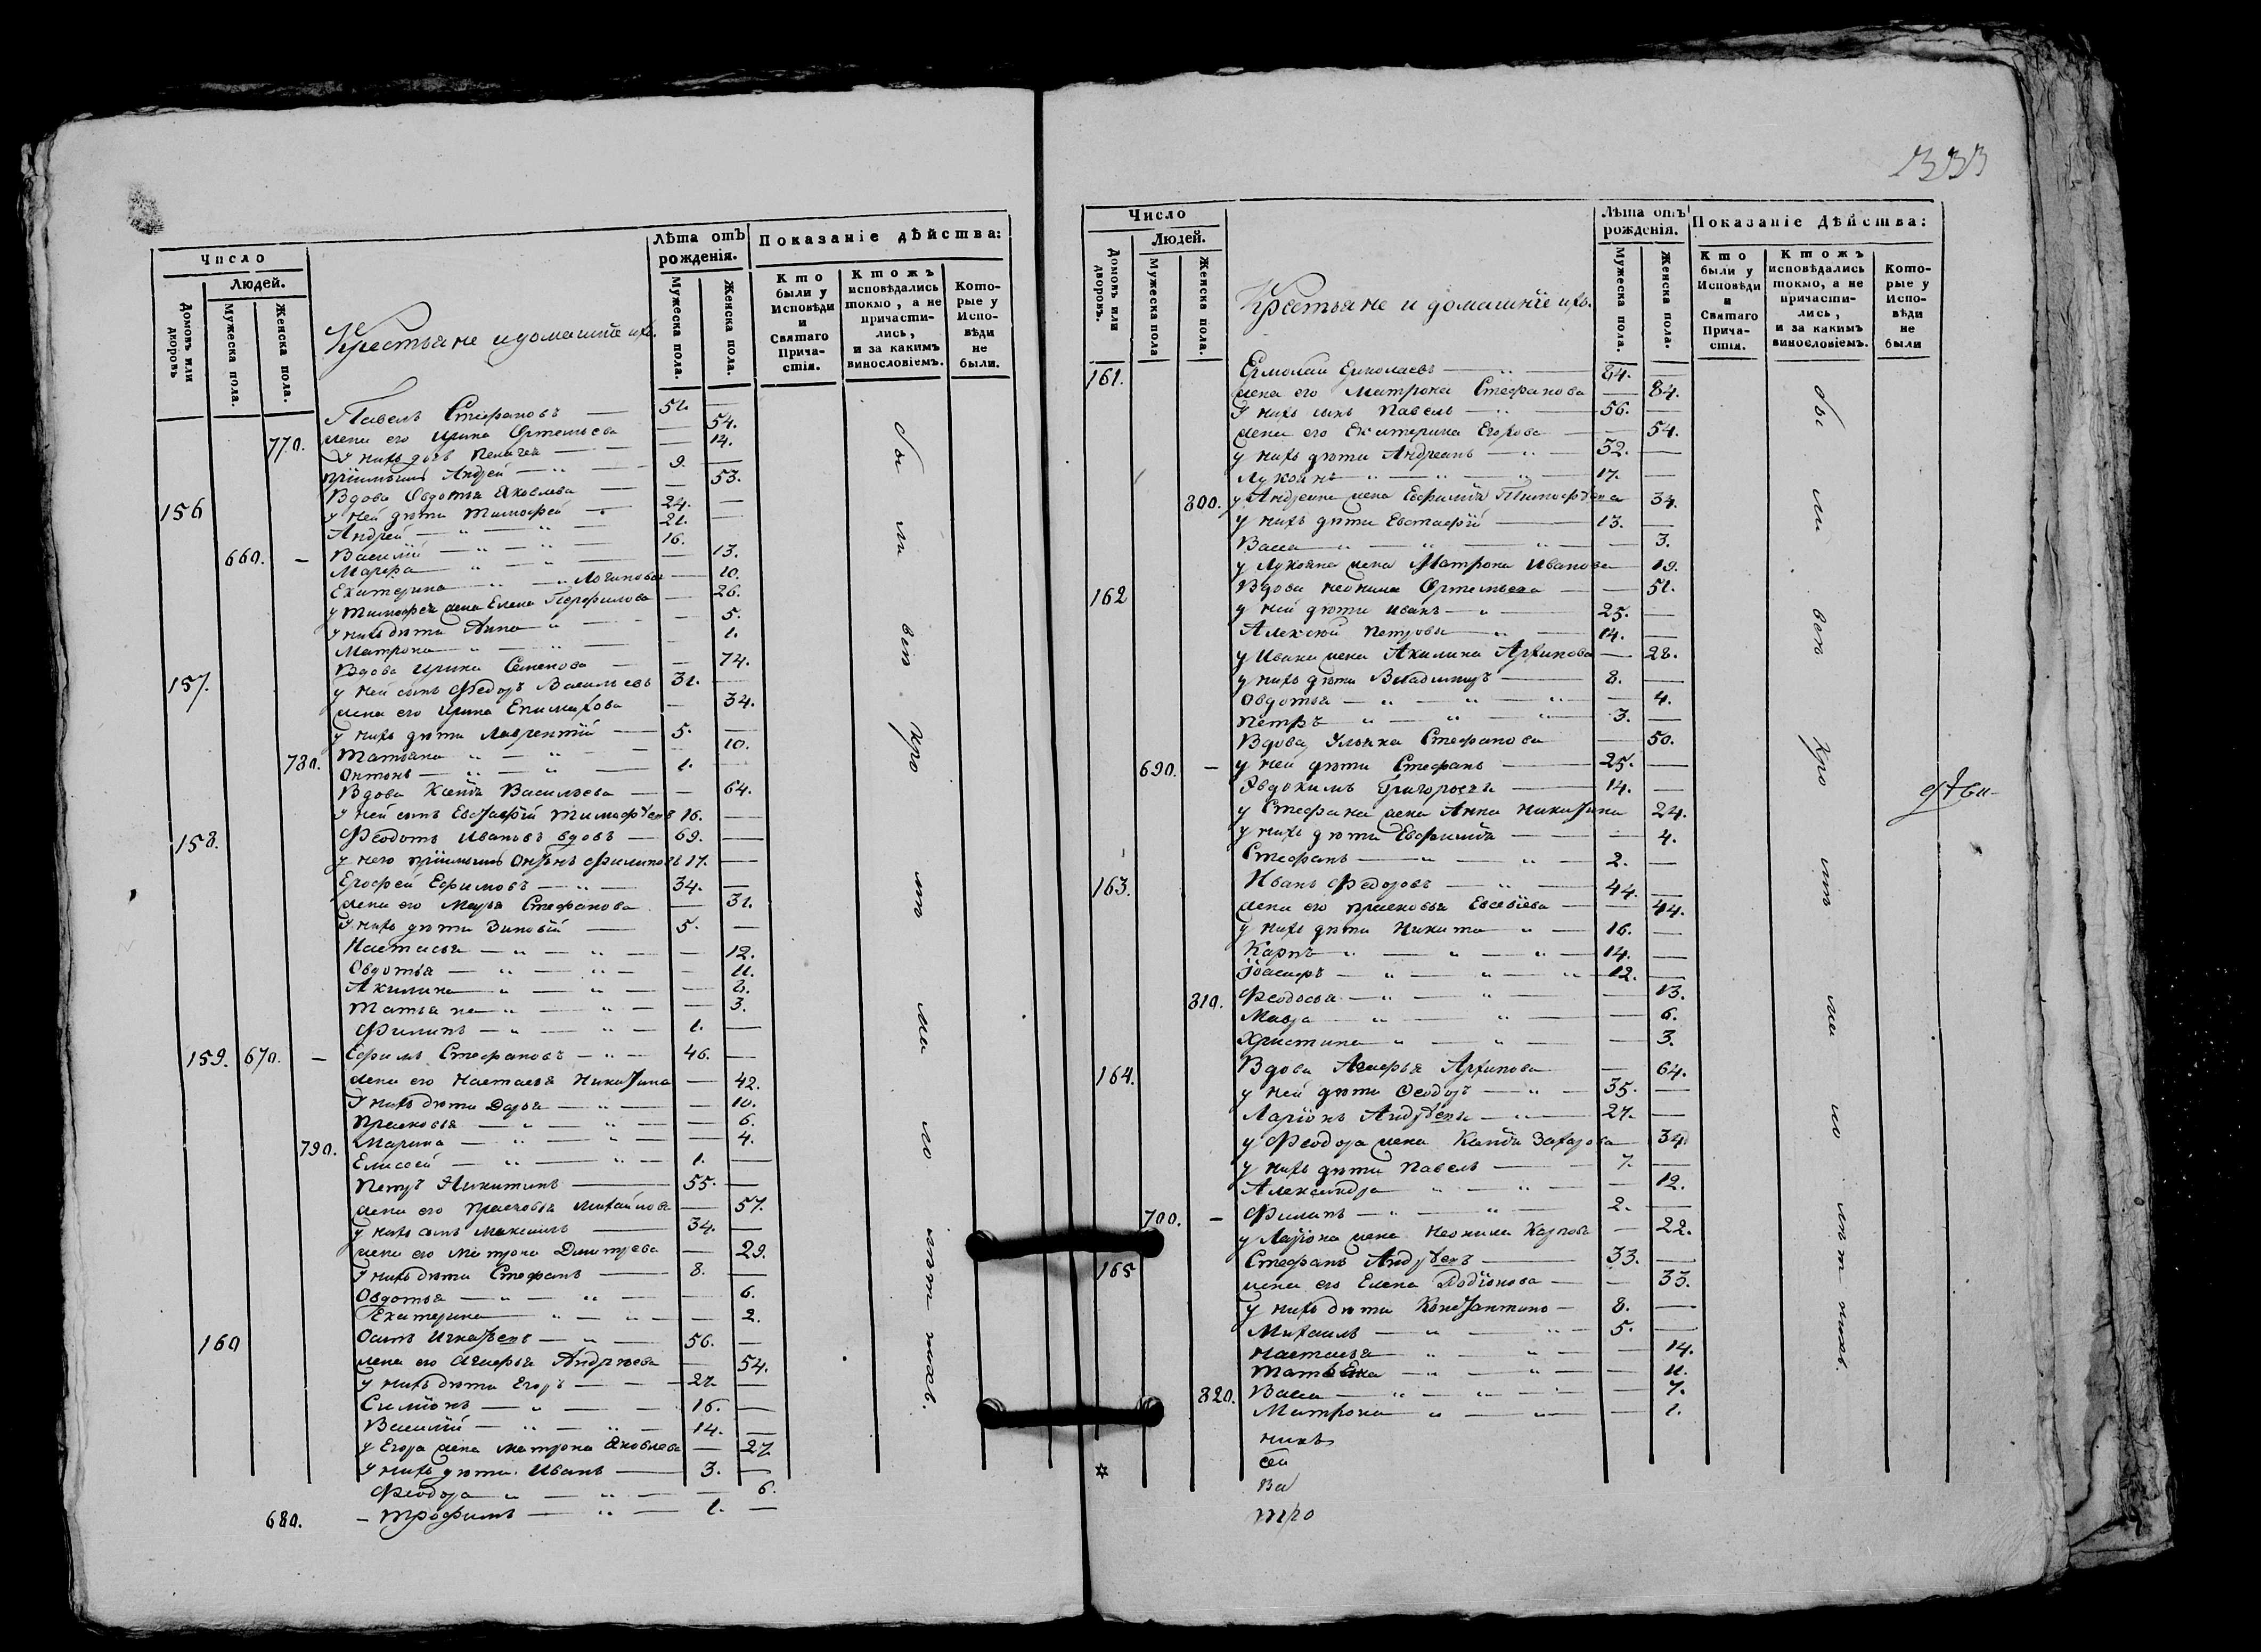 Число
Людей.
Домовъ или дворовъ
Мужеска пола.
Женска пола.
Крестьяне и домашніе ихъ.
Лѣта отъ рожденія.
Мужеска пола.
Женска пола.
Показаніе дѣйства:
Кто были у Исповѣди и Святаго Причастія.
Ктожъ исповѣдались токмо, а не причастились, и за какимъ винословіемъ.
Которые у Исповѣди не были.
Павелъ Стефановъ — 51. —
жена его Ирина Ортемьева — 54.
770. У нихъ дочь Пелагея — 14.
пріимышъ Андрей — 9. —
156 Вдова Овдотья Яковлева — 53.
у ней дѣти Тимофей — 24. —
Андрей — 21. —
660. — Василій — 16. —
Марфа — 13.
Екатерина Логиновы — 10.
у Тимофея жена Елена Перфилова — 26.
у нихъ дѣти Анна — 5.
Матрона — 1.
157. Вдова Ирина Семенова — 74.
у ней сынъ Федоръ Васильевъ 31. —
жена его Ирина Епимахова — 34.
у нихъ дѣти Лаврентій — 5. —
780. Татьяна — 10.
Онтонъ — 1. —
Вдова Ксенія Васильева — 64.
у ней сынъ Евстафій Тимофѣевъ 16. —
158. Феодотъ Ивановъ вдовъ — 69. —
у него пріимышъ Филиповъ 17. —
Ерофей Ефимовъ — 34. —
жена его Марья Стефанова — 31.
У нихъ дѣти Зиновій — 5. —
Настасья — 12.
Овдотья — 11.
Акилина — 8.
Татьяна — 3.
Филипъ — 1. —
159. 670. — Ефимъ Стефановъ — 46. —
жена его Настасья Никитина — 42.
У нихъ дѣти Дарья — 10.
Прасковья — 6.
790. Марина — 4.
Елисей — 1. —
Петръ Никитинъ — 55. —
жена его Прасковья Михайлова — 57.
у нихъ сынъ Максимъ — 34. —
жена его Матрона Димитрева — 29.
У нихъ дѣти Стефанъ — 8. —
Овдотья — 6.
Екатерина — 2.
160 Осипъ Игнатьевъ — 56. —
жена его Агафья Андрѣева — 54.
У нихъ дѣти Егоръ — 27 —
Симіонъ — 16. —
Василій — 14. —
у Егора жена Матрона Яковлева — 27
У нихъ дѣти Иванъ — 3. —
Феодора — 6.
680. — Трофимъ — 1. —
бы ли вси кро
333
Число
Людей.
Домовъ или дворовъ.
Мужеска пола
Женска пола.
Крестьяне и домашніе ихъ.
Лѣта отъ рожденія.
Мужеска пола.
Женска пола.
Показаніе Дѣйства:
Кто были у Исповѣди и Святаго Причастія.
Ктожъ исповѣдались токмо, а не причастились, и за какимъ винословіемъ.
Которые у Исповѣди не были
161. Ермолай Ермолаевъ — 84. —
жена его Матрона Стефанова — 84.
У нихъ сынъ Павелъ — 56. —
жена его Екатерина Егорова — 54.
у нихъ дѣти Андреанъ — 32. —
Лукоянъ — 17. —
800. у Андреяна жена Евфимія Тимофѣева 34.
у нихъ дѣти Евстафій — 13. —
Васса — 3.
у Лукояна жена Матрона Иванова — 19.
162 Вдова Неонила Ортемьева — 51.
у ней дѣти Иванъ — 25. —
Алексѣй Петровы — 14. —
у Ивана жена Акилина Архипова — 28.
у нихъ дѣти Владимиръ — 8. —
Овдотья — 4.
Петръ — 3. —
Вдова Ульяна Стефанова — 50.
690. — у ней дѣти Стефанъ — 25. —
Евдокимъ Григорьевы — 14. —
у Стефана жена Анна Никитина 24.
у нихъ дѣти Евфимія — 4.
Стефанъ — 2. —
163. Иванъ Федоровъ — 44. —
жена его Прасковья Евсевіева — 44.
у нихъ дѣти Никита — 16. —
Карпъ — 14. —
Іоасафъ — 12. —
810. Феодосья — 13.
Мавра — 6.
Христина — 3.
164. Вдова Агафья Архипова — 64.
у ней дѣти Феодоръ — 35. —
Ларіонъ Андрѣевы — 27. —
у Феодора жена Ксенія Захарова 34
у нихъ дѣти Павелъ — 7. —
Александра — 12.
700. — Филипъ — 2. —
у Ларіона жена Неонила Карпова — 22.
165 Стефанъ Андрѣевъ — 33. —
жена его Елена Родіонова — 33.
у нихъ дѣти Константинъ — 8. —
Михаилъ — 5. —
Настасья — 14.
Татьяна — 11.
820. Васса — 7.
Матрона — 1.
бы ли вси кро